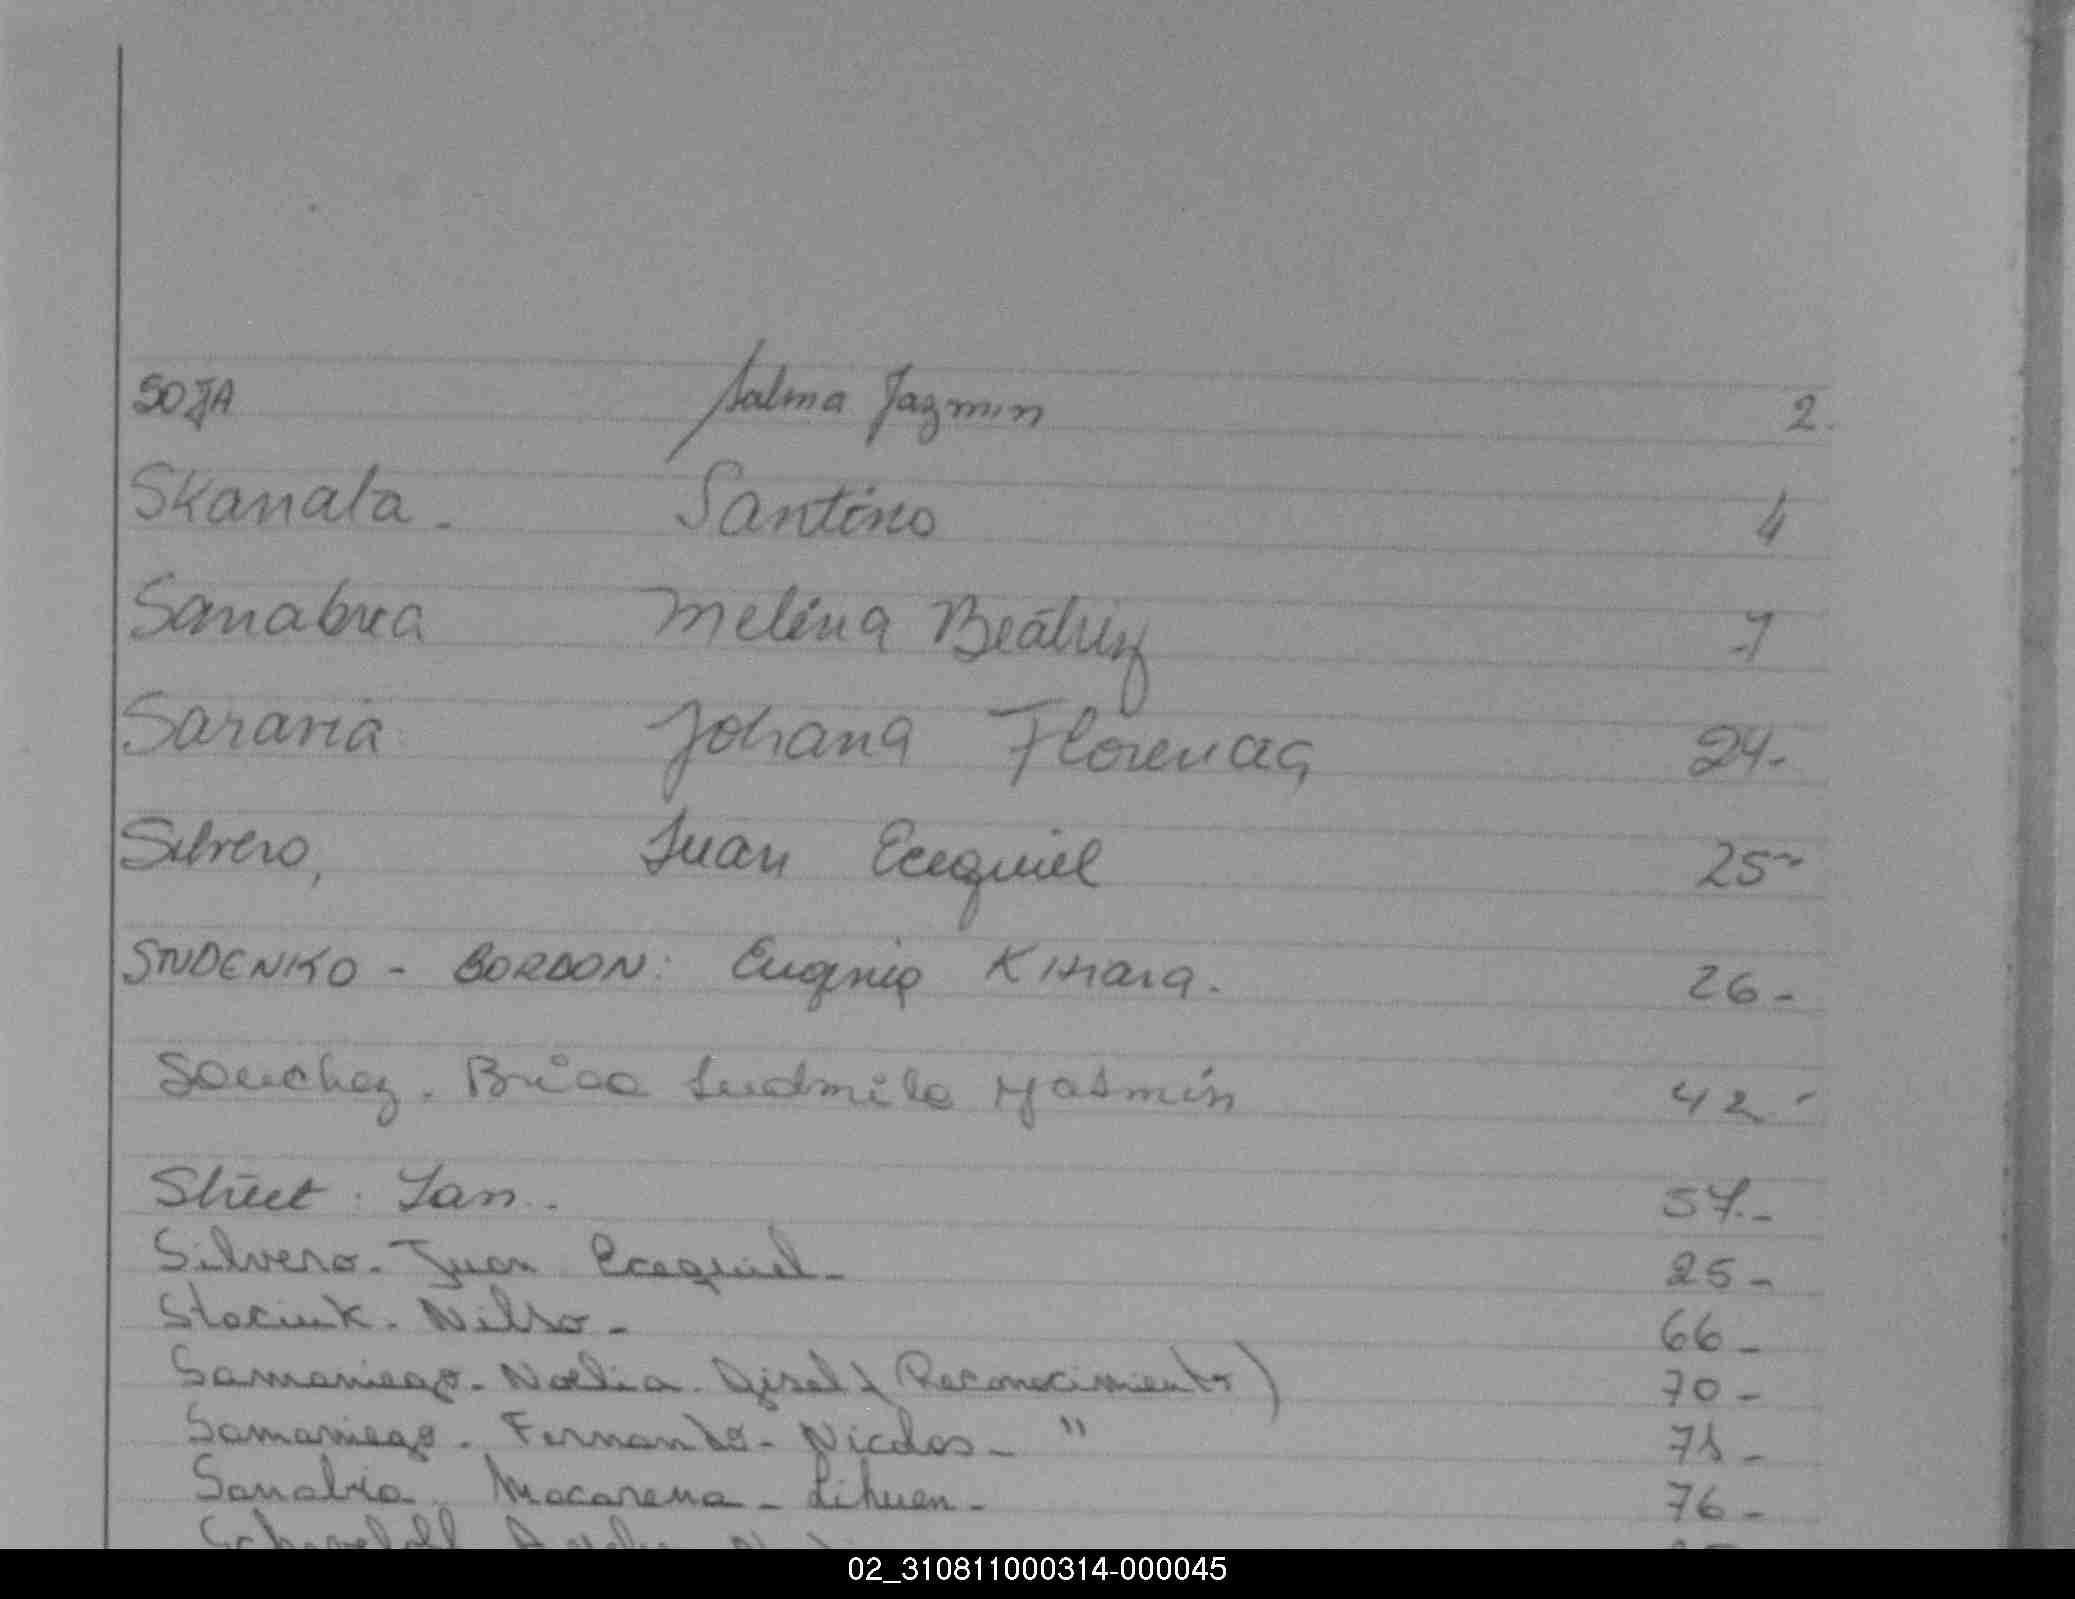 SOJA Salma Jazmin 2.
Skanata. Santino 4
Sanabria Melina Beátriz 7
Sararia Johana Florencia 24-
Silvero, Juan Ecequiel 25-
STUDENKO - BORDON: Eugenia Kihara. 26-
Sanchez. Brisa Ludmila Yasmín 42-
Street: Ian.. 57.-
Silvero. Juan Ecequiel- 25-
Stociuk. Nilso- 66-
Samaniego. Noelia. Gisel (Reconocimiento) 70-
Samaniego. Fernando- Nicolas- " 71-
Sanabria. Macarena- Lihuen- 76-
02_310811000314-000045